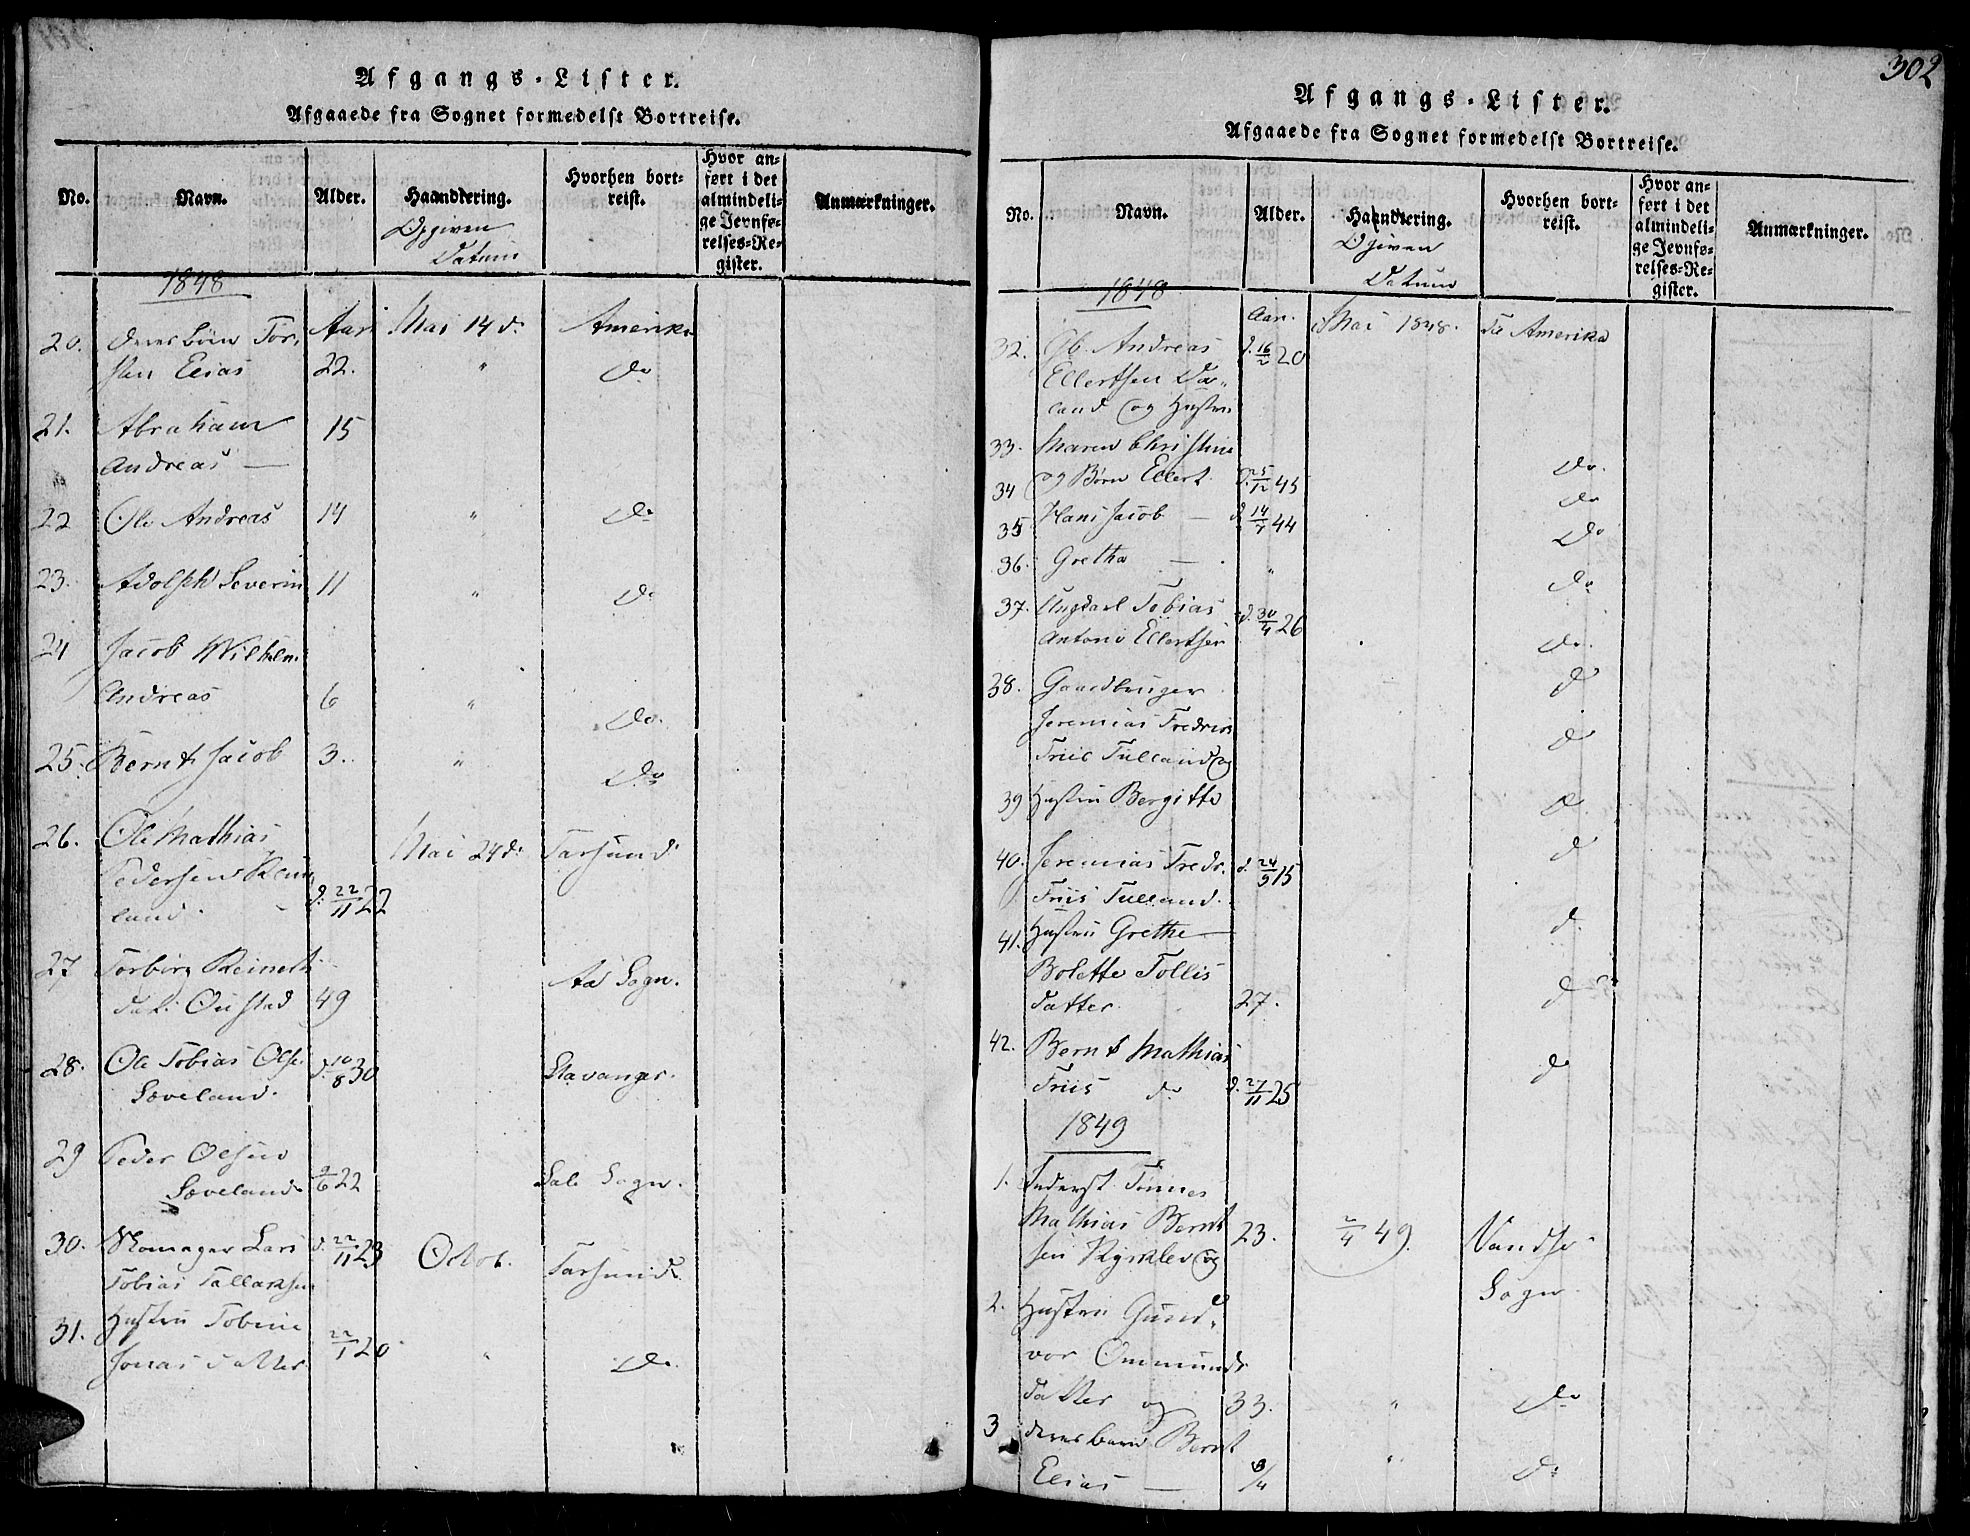 Afgangs-Lister.
Afgaaede fra Sognet formedelst Bortreise.
No. Navn. Alder. Haandtering. Hvorhen bortreist. Hvor anført i det almindelige Jevnførelses-Register. Anmærkninger.
Opgiven
Datum
1848
20. Deres Børn Tor, Aar Mai 14 d. Amerika
sten Elias 22. " Do
21. Abraham 15
Andreas —
22 Ole Andreas 14 " Do
23. Adolph Severin 11 " Do
24 Jacob Wilhelm
Andreas 6 " Do.
25. Bernt Jacob 3. " Do
26. Ole Mathias Mai 24 d. Farsund
Pedersen
land. d. 22/11 22
27 Torbor Reinerts
dat. 49 Aa Sogn.
28. Ole Tobias Ols. d. 10/8 30 Stavanger.
Soveland.
29 Peder Olsen
Soveland 9/6 22 Sogn.
30. Skomager Lars d. 22/11 23 Octob. Farsund
Tobias Tallaksen
31. Hustru Tobine
Jonas datter 22/1 20 " Do.
302
Afgangs-Lister.
Afgaaede fra Sognet formedelst Bortreise.
No. Navn. Alder. Haandtering. Hvorhen bortreist. Hvor anført i det almindelige Jevnførelses-Register. Anmærkninger.
Opgiven
Datum
1848
Aar. Mai 1848. Til Amerika
32. Andreas d. 16/2 20
Ellertsen Da,
land og Hustru
33. Maren Christine Do.
34 og Børn Ellert d. 25/12 45 Do
35 Hans Jacob — d. 14/7 44 Do
36. Grethe — " Do
37. Ungkarl Tobias d. 30/4 26
Antoni Ellertsen Do.
38. Gaardbruger d
Jeremias Fredrik
Friis Tulland og d
39 Hustru Bergitte d
40. Jeremias Fredr. d. 24/9 15 d
Friis Tulland.
41. Hustru Grethe d.
Bolette Tollis
datter 27. d
42. Bernt Mathias d
Friis do d. 27/11 25
1849
1. Inderst Tønnes
Mathias Bernt 23. 2/4 49. Vandsø
sen og Sogn
2. Hustru Gund,
vor Ommunds
datter og 33. " Do
3 deres barn Bernt
Elias — 3/4 " Do